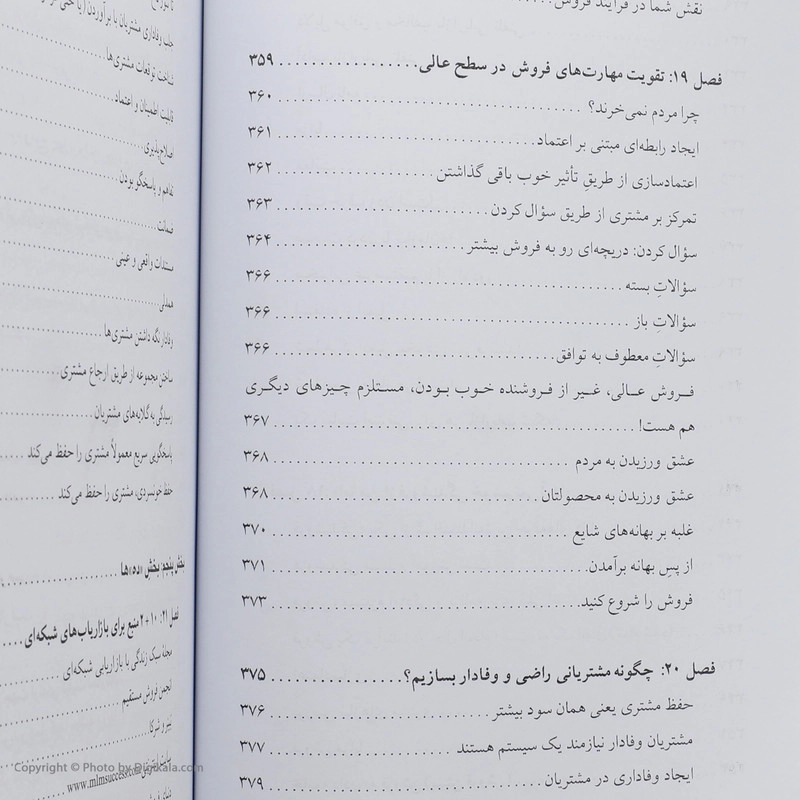 نقش شما در فرآیند فروش
فصل ۱۹: تقویت مهارت‌های فروش در سطح عالی ۳۵۹
چرا مردم نمی‌خرند؟ ۳۶۰
ایجاد رابطه‌ای مبتنی بر اعتماد ۳۶۱
اعتمادسازی از طریق تأثیر خوب باقی گذاشتن ۳۶۲
تمرکز بر مشتری از طریق سؤال کردن ۳۶۳
سؤال کردن: دریچه‌ای رو به فروش بیشتر ۳۶۴
سؤالاتِ بسته ۳۶۶
سؤالاتِ باز ۳۶۶
سؤالاتِ معطوف به توافق ۳۶۶
فـروش عـالی، غـیر از فـروشنده خـوب بـودن، مسـتلزم چـیزهای دیگـری
هم هست! ۳۶۷
عشق ورزیدن به مردم ۳۶۸
عشق ورزیدن به محصولتان ۳۶۸
غلبه بر بهانه‌های شایع ۳۷۰
از پسِ بهانه برآمدن ۳۷۱
فروش را شروع کنید ۳۷۳
فصل ۲۰: چگونه مشتریانی راضی و وفادار بسازیم؟ ۳۷۵
حفظ مشتری یعنی همان سود بیشتر ۳۷۶
مشتریان وفادار نیازمند یک سیستم هستند ۳۷۷
ایجاد وفاداری در مشتریان ۳۷۹
جلب وفاداری مشتریان با برآوردن
شناخت توقعات مشتری‌ها
قابلیت اطمینان و اعتماد
اصلاح‌پذیری
تفاهم و پاسخگو بودن
ضمانت
مستندات واقعی و عینی
همدلی
وفادار نگه داشتن مشتری‌ها
ساختن مجموعه از طریق ارجاع مشتری
رسیدگی به گلایه‌های مشتریان
پاسخگویی سریع معمولاً مشتری را حفظ می‌کند
حفظ خونسردی، مشتری را حفظ می‌کند
بخش پنجم: بخش «ده»ها
فصل ۲۱: ۱۰ + ۲ منبع برای بازاریاب‌های شبکه‌ای
مجله سبک زندگی با بازاریابی شبکه‌ای
انجمن فروش مستقیم
www.mlmsuccess.com
Copyright © Photo by Digikala.com